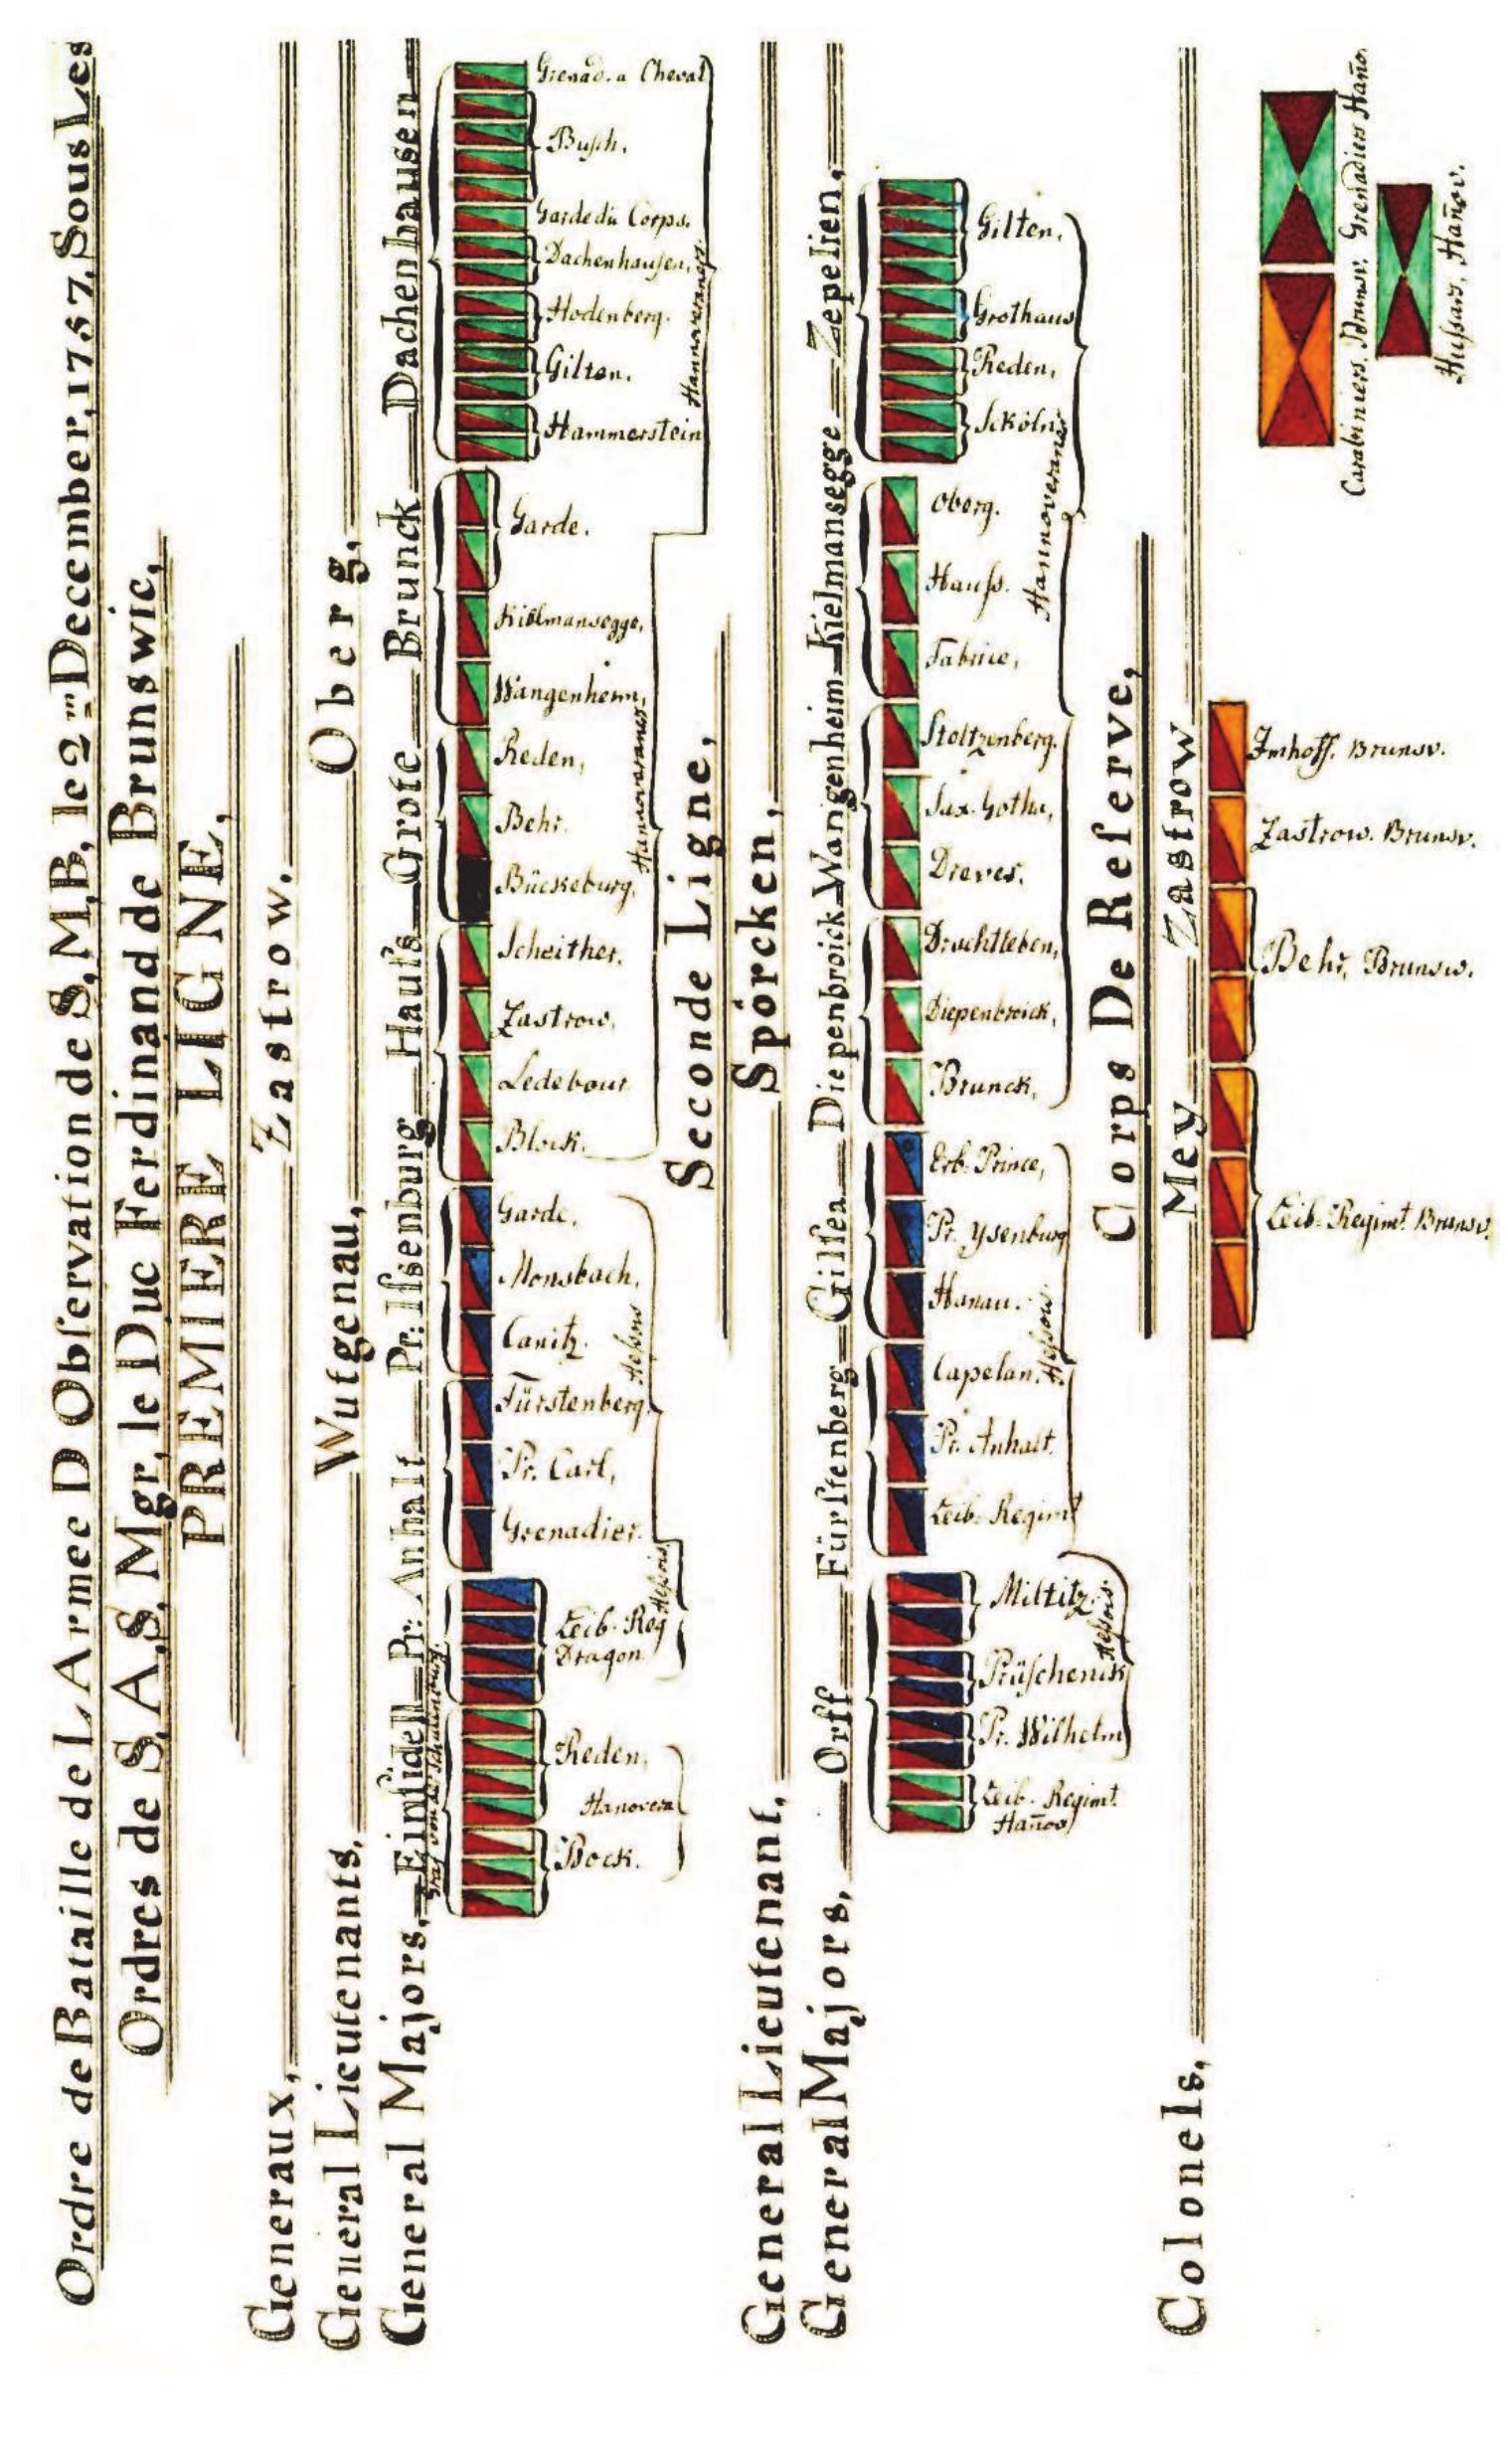 Ordre de Bataille de L Armee D Obſervation de S, M, B, le 2m December, 1757, Sous Les
Ordres de S, A, S, Mgr, le Duc Ferdinand de Brunswic,
PREMIERE LIGNE,
Generaux, Zastrow.
General Lieutenants, Wutgenau, Oberg,
General Majors, Einſidell Pr: Anhalt Pr: Iſsenburg Hauſs Grote Brunck Dachenhausen
Graf von der Schulenburg
Bock.
Reden.
Hanovera
Leib-Reg
Dragon
Heſsois
Grenadier.
Pr. Carl,
Fürstenberg.
Canitz.
Monsbach,
Garde,
Heſsois
Block.
Ledebour
Zastrow.
Scheither.
Bückeburg,
Behr.
Reden,
Wangenheim,
Kielmansegge,
Garde.
Hannoveraner
Hammerstein
Gilten.
Hodenberg.
Dachenhauſen,
Garde du Corps.
Buſch.
Grenad. a Cheval
Hannoveraner
Seconde Ligne,
General Lieutenant, Spörcken,
General Majors, Orff Fürſtenberg Gilſea Diepenbroick Wangenheim Kielmansegge Zepelien,
Leib. Regimt.
Hañov
Pr. Wilhelm
Prüſchenck
Miltitz.
Heſsois
Leib-Regimt
Pr. Anhalt.
Capelan.
Hanau.
Pr. Ysenburg
Erb-Prince,
Heſsois
Brunck,
Diepenbroick,
Drachtleben,
Dreves.
Sax. Gotha,
Stoltzenberg.
Fabrice,
Hauſs.
Oberg.
Hannoveraner
Reden,
Grothaus
Gilten,
Corps De Reſerve,
Colonels, Mey Zastrow
Leib-Regimt. Brunsv.
Behr, Brunsw.
Zastrow. Brunsv.
Imhoff. Brunsv.
Carabiniers. Brunsv. Grenadiers Haño.
Huſsars, Hañov.